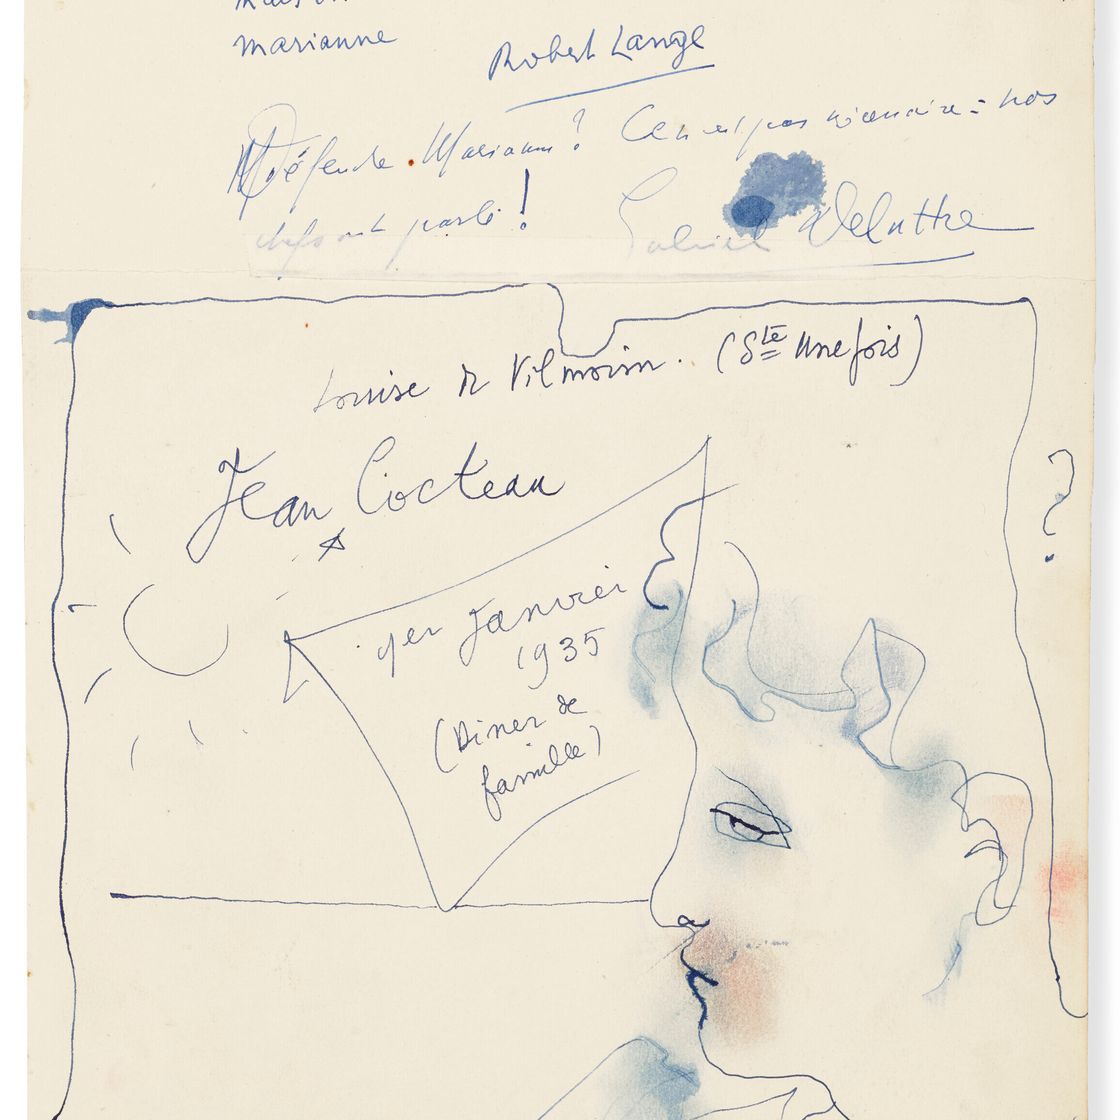 marianne
Robert Lange
Défendre Marianne? Ce n'est pas nécessaire: nos
chefs ont parlé!
Gabriel Delattre
Louise de Vilmorin. (Ste Unefois)
Jean Cocteau
?
1er Janvier
1935
(Diner de
famille)